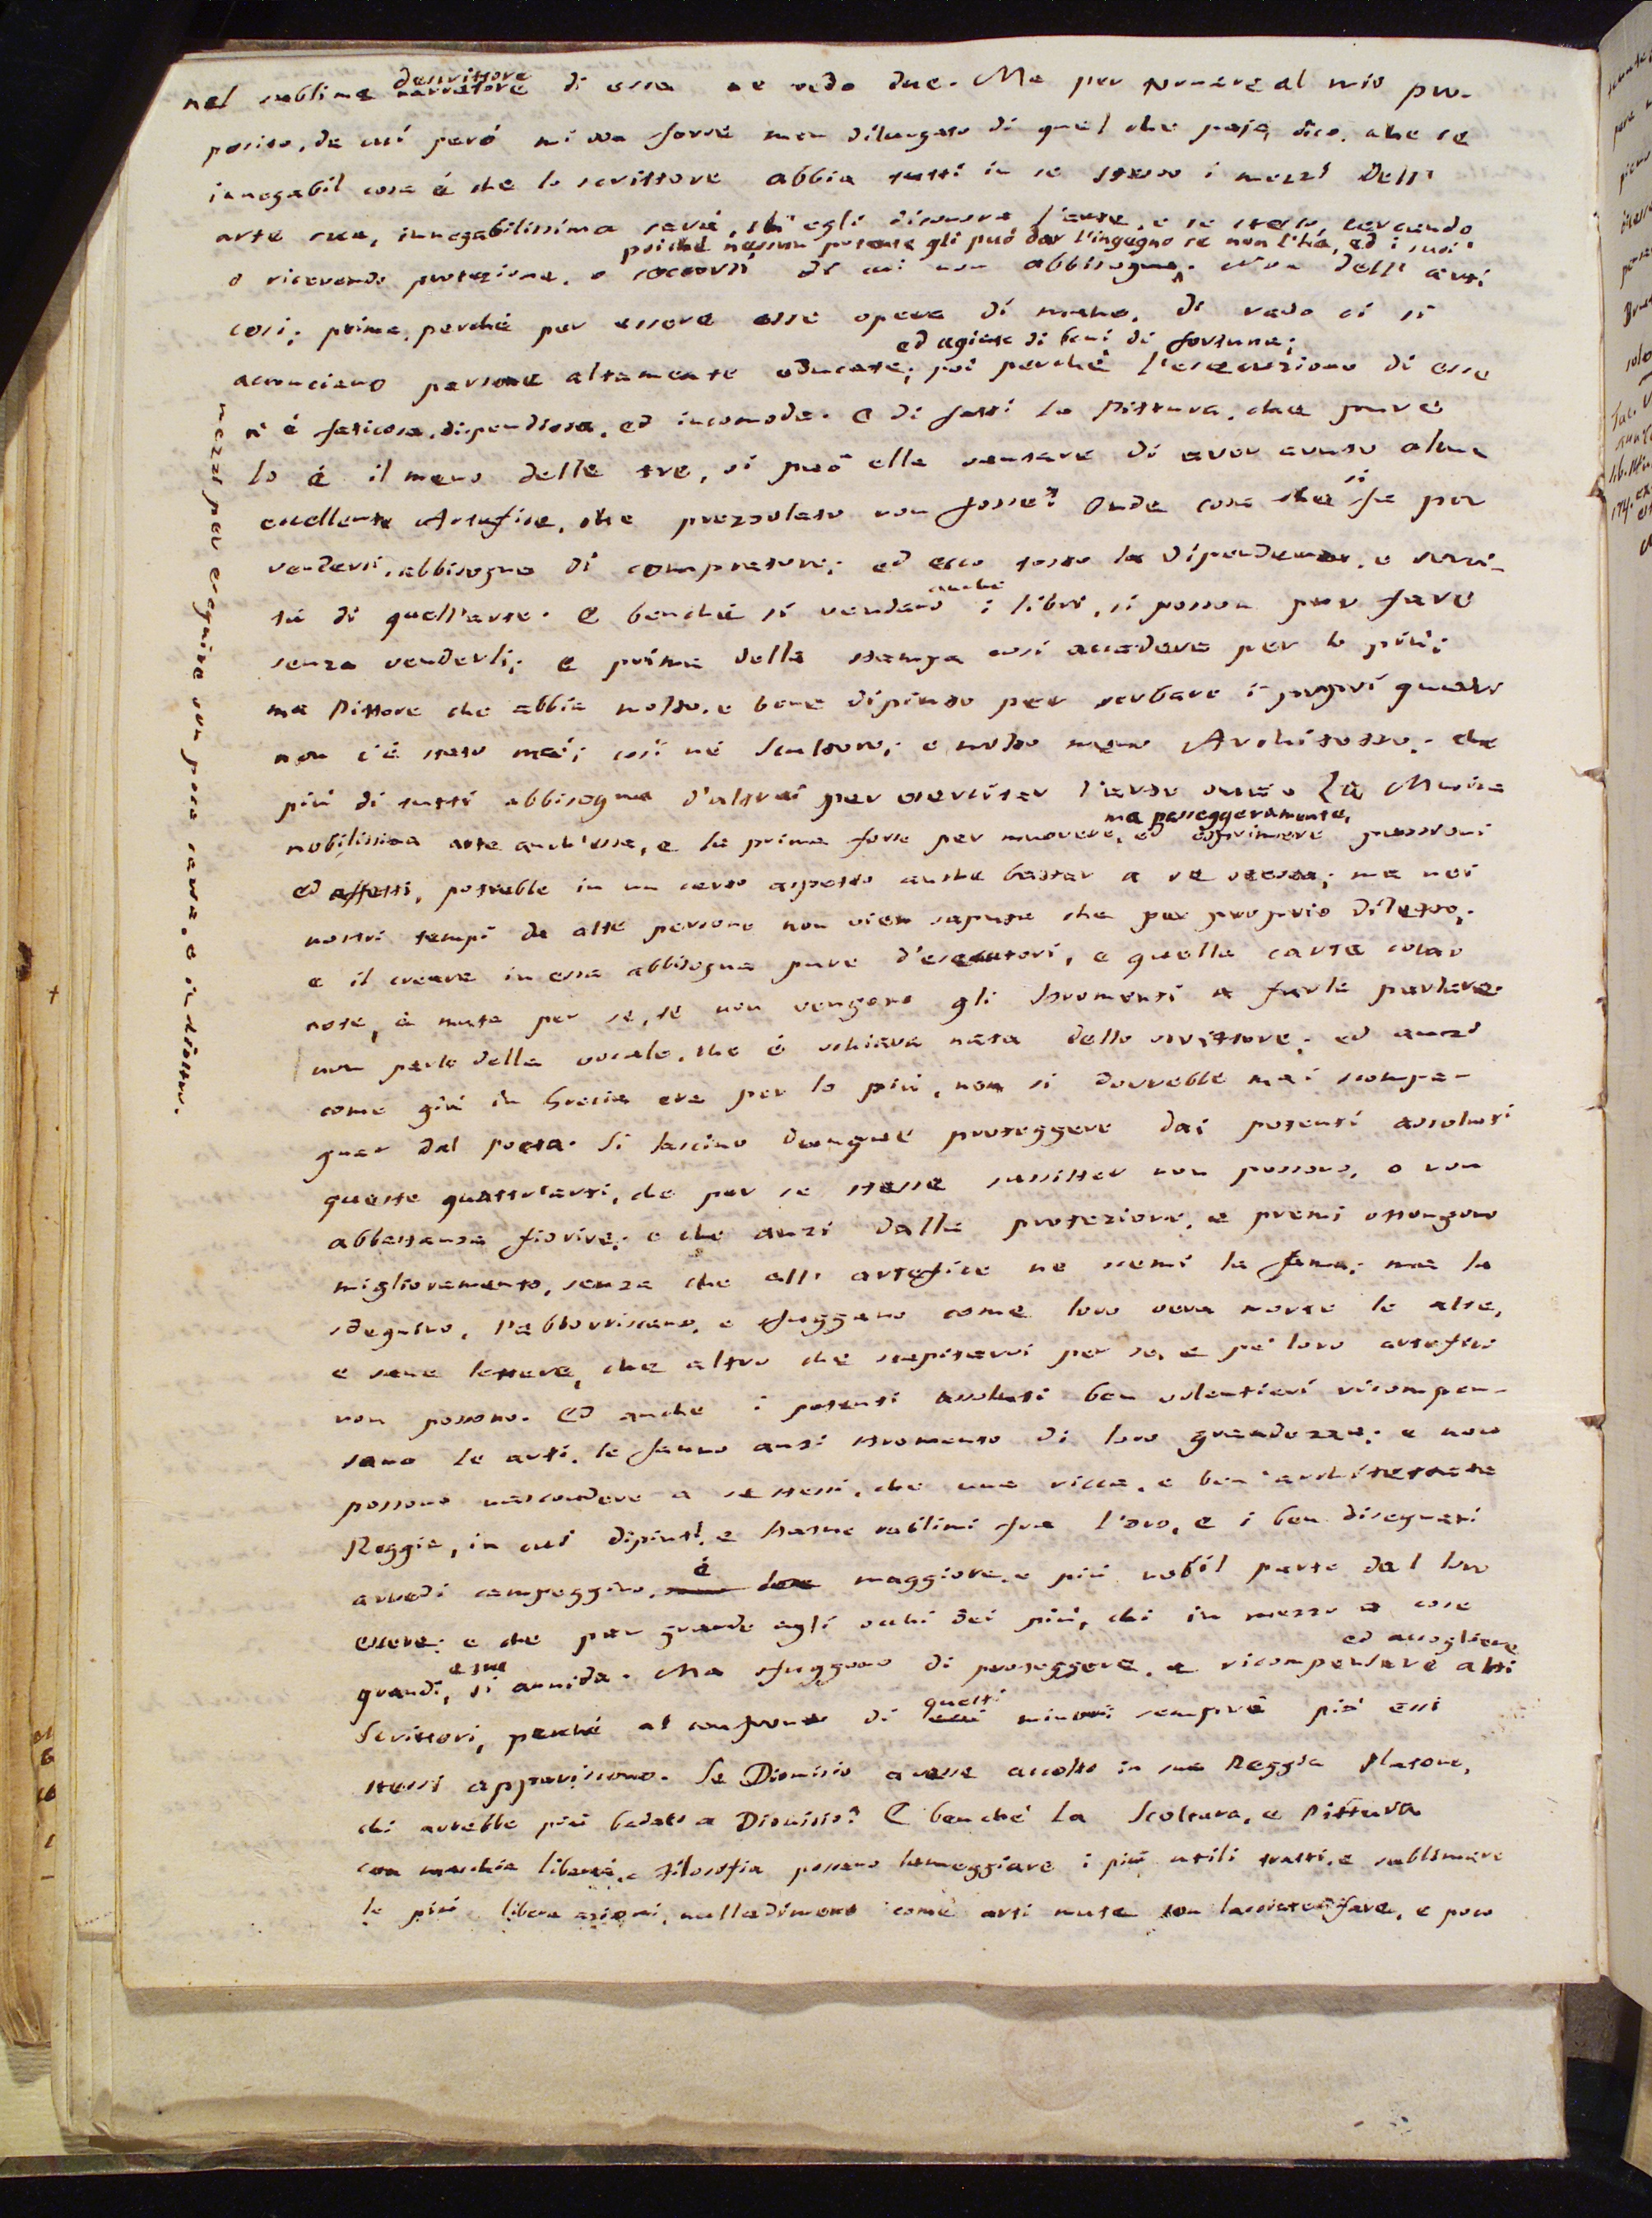 descrittore
nel sublime narratore di essa ne vedo due. Ma per tornare al mio pro-
posito, da cui però mi son forse men dilungato di quel che paja, dico, che se
innegabil cosa è che lo scrittore abbia tutti in se stesso i mezzi dell'
arte sua, innegabilissima sarà, ch'egli disonora l'arte, e se stesso, cercando
poichè nessun potente gli può dar l'ingegno se non l'ha, ed i suoi
o ricevendo protezione, o soccorsi di cui non abbisogna. Non dell'arti
così; prima, perchè per essere esse opera di mano, di rado ci si
ed agiate di beni di fortuna;
acconciano persone altamente educate; poi perchè l'esecuzione di esse
n'è faticosa, dispendiosa, ed incomoda. E di fatti la Pittura, che pure
lo è il meno delle tre, si può ella vantare di aver avuto alcun
si
eccellente Artefice, che prezzolato non fosse? Onde cosa che fa per
vendersi, abbisogna di compratore; ed ecco tosto la dipendenza, e servi-
anche
tù di quell'arte. E benchè si vendano i libri, si posson pur fare
senza venderli; e prima della stampa così accadeva per lo più;
ma Pittore che abbia molto, e bene dipinto per serbare i proprj quadri
non c'è stato mai; così nè Scultore; e molto meno Architetto; che
più di tutti abbisogna d'altrui per esercitar l'arte sua. La Musica
ma passeggeramente,
nobilissima arte anch'essa, e la prima forse per muovere, ed esprimere passioni
ed affetti, potrebbe in un certo aspetto anche bastar a se stessa; ma nei
nostri tempi da alte persone non vien saputa che per proprio diletto;
e il creare in essa abbisogna pure d'esecutori, e quella carta colle
note, è muta per se, se non vengono gli stromenti a farla parlare.
non parlo della vocale, che è schiava nata dello scrittore; ed anzi
come già in Grecia era per lo più, non si dovrebbe mai scompa-
gnar dal poeta. Si lascino dunque proteggere dai potenti assoluti
queste quattr'arti, che per se stesse sussister non possono, o non
abbastanza fiorire; e che anzi dalla protezione, e premj ottengono
miglioramento, senza che all'artefice ne scemi la fama; ma la
sdegnino, l'abborriscano, e sfuggano come loro vera morte le alte,
e sane lettere, che altro che scapitarvi per se, e pe' loro artefici
non possono. Ed anche i potenti assoluti ben volentieri ricompen-
sano le arti, le fanno anzi stromento di loro grandezza; e non
possono nascondere a se stessi, che una ricca, e ben architettata
Reggia, in cui dipinti, e statue sublimi fra l'oro, e i ben disegnati
è
arredi campeggino, maggiore, e più nobil parte del loro
essere; e che par grande agli occhi dei più, chi in mezzo a cose
e sue ed accogliere
grandi, si annida. Ma sfuggono di proteggere, e ricompensare alti
questi
Scrittori, perchè al confronto di essi minori sempre più essi
stessi appariscono. Se Dionisio avesse accolto in sua Reggia Platone,
chi avrebbe più badato a Dionisio? E benchè la Scoltura, e Pittura
con maschia libertà, e filosofia possano lumeggiare i più utili tratti, e sublimare
le più libere azioni, nulladimeno come arti mute son lasciate fare, e poco
mezzi per eseguire son poca carta, e inchiostro.